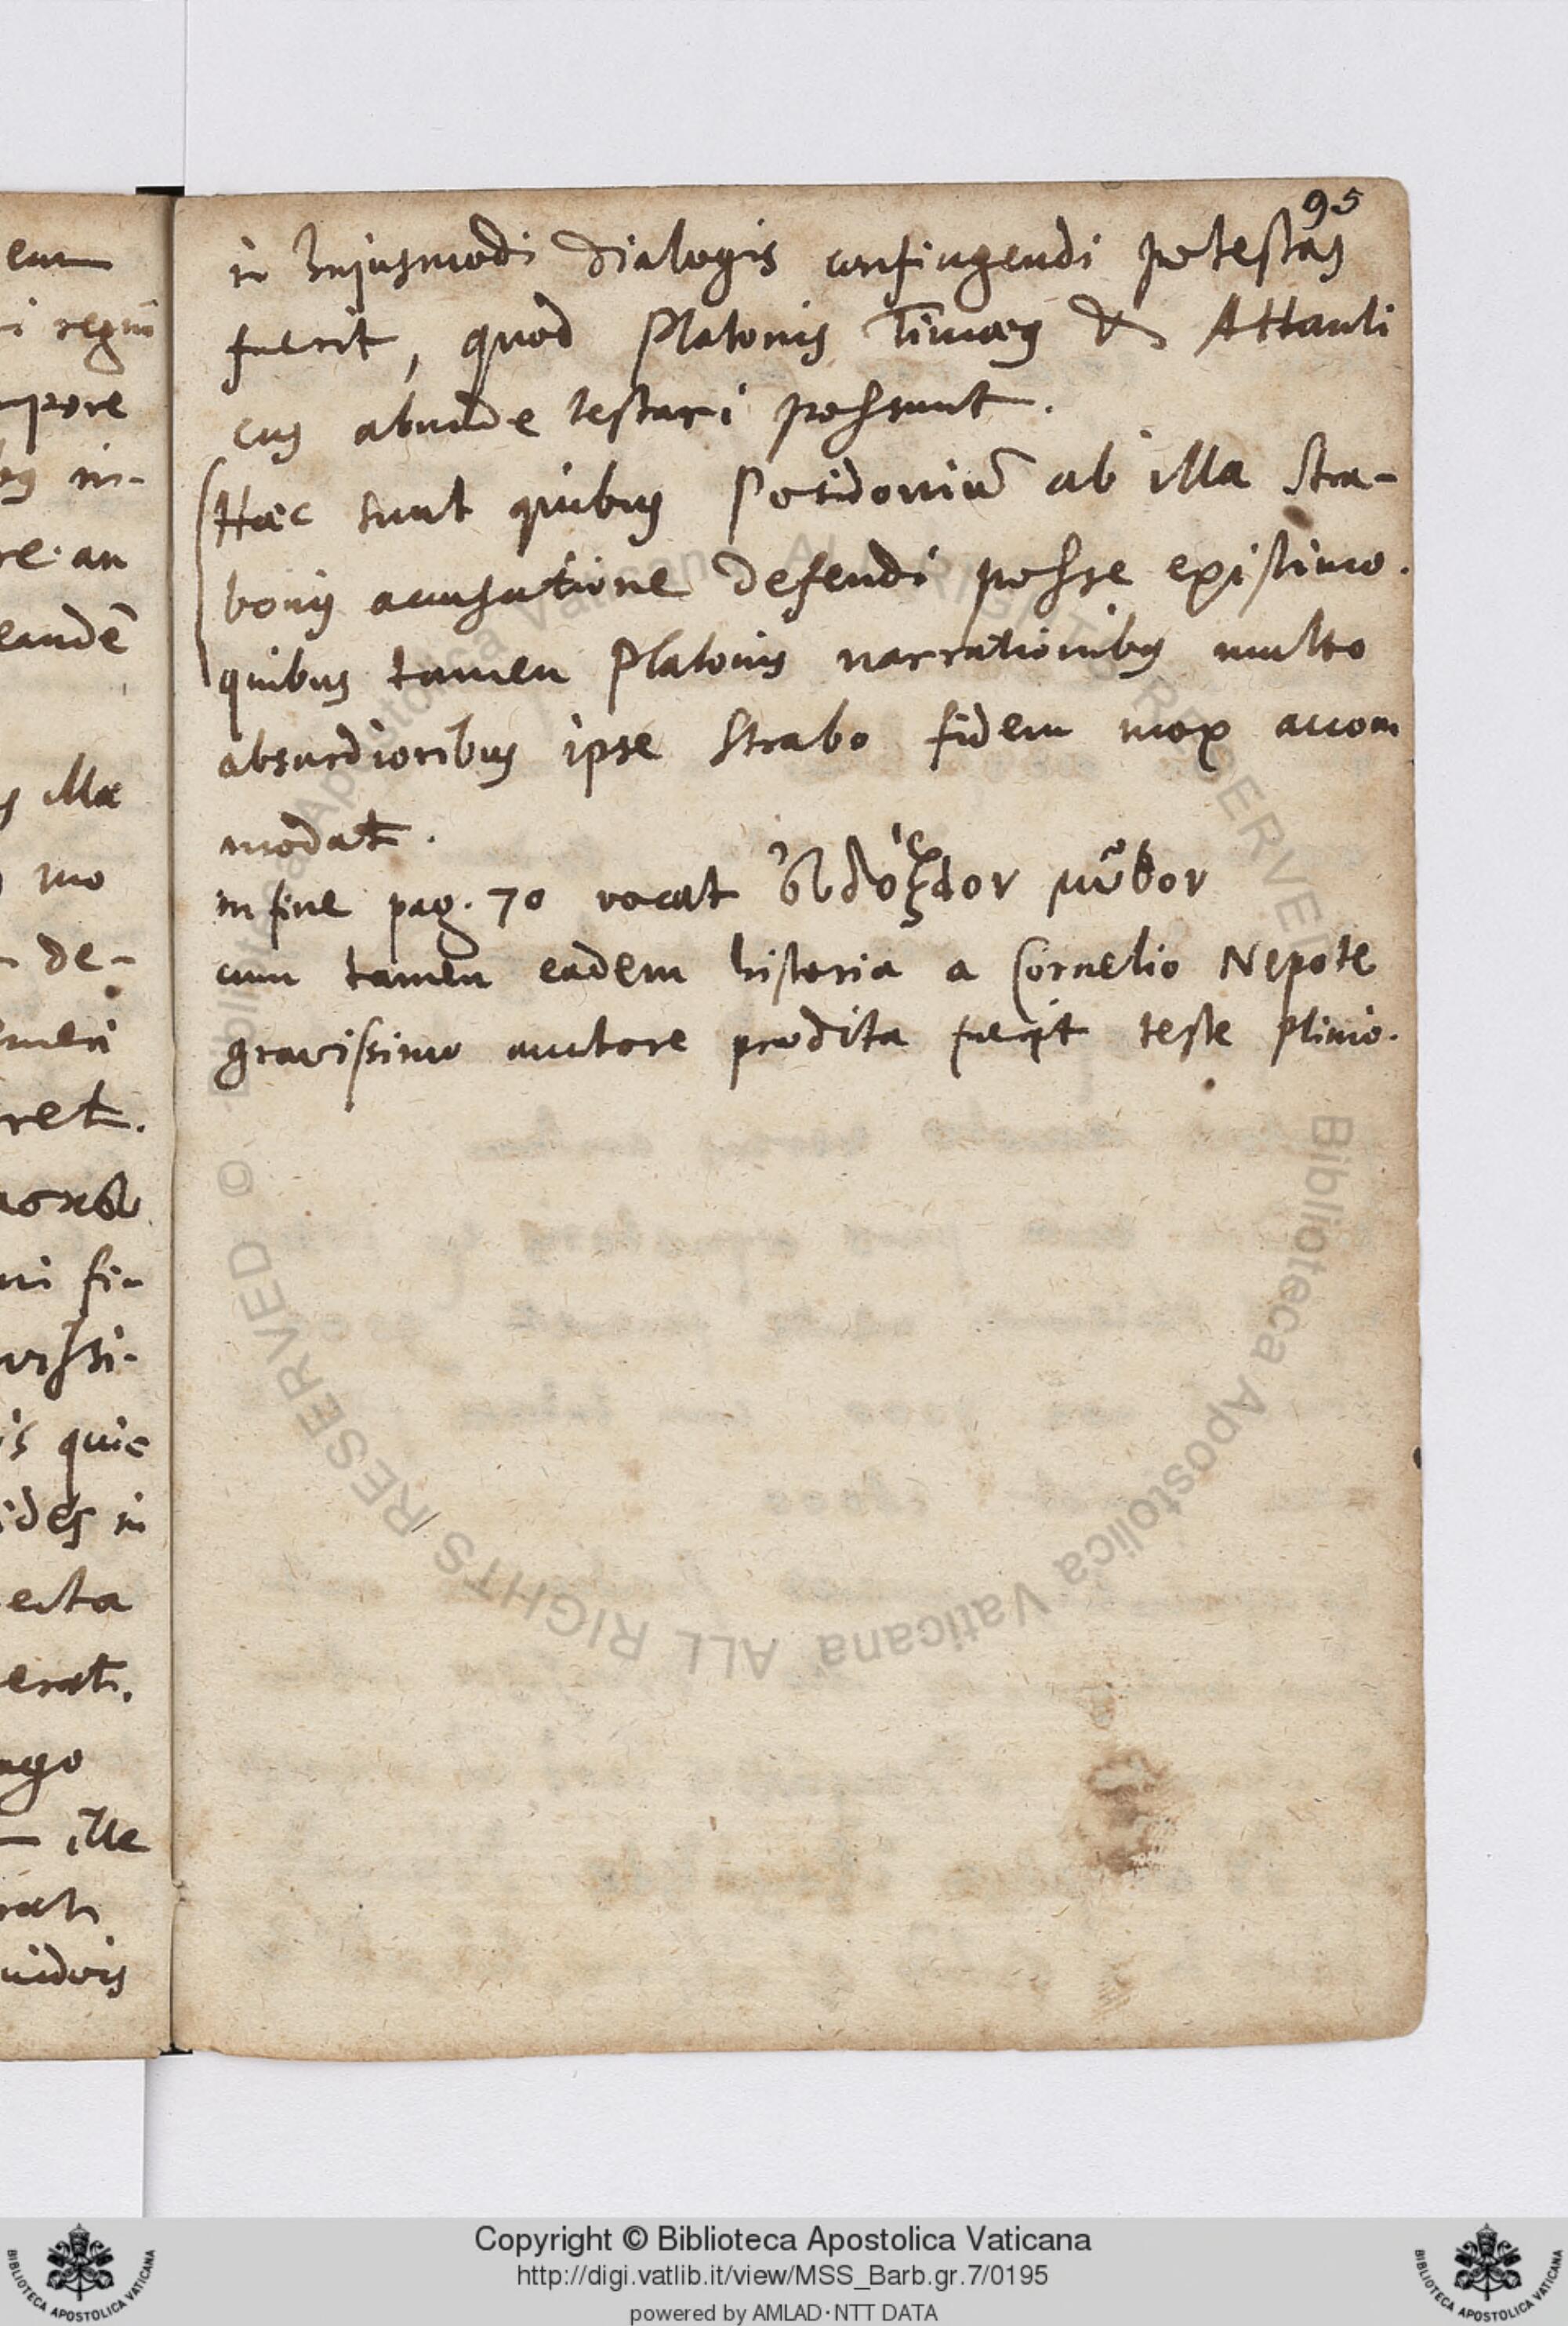 95
in hujusmodi dialogis confingendi potestas
fuerit, quod Platonis Timæus & Atlanti
cus abunde testari possunt.
Hæc sunt quibus Posidoniū ab illa Stra-
bonis accusatione defendi posse existimo.
quibus tamen Platonis narrationibus multo
absurdioribus ipse Strabo fidem mox accom
modat.
in fine pag. 70 vocat μῦθον
cum tamen eadem historia a Cornelio Nepote
gravissimo auctore prodita fuerit teste Plinio.
eum
i regnū
mpore
in-
re. an
eandē
illa
mo
de-
ret.
fi-
vissi-
is quic
ides in
ecta
erat.
ille
uidvis
Biblioteca Apostolica Vaticana ALL RIGHTS RESERVED ©
Biblioteca Apostolica Vaticana ALL RIGHTS RESERVED
Copyright © Biblioteca Apostolica Vaticana
http://digi.vatlib.it/view/MSS_Barb.gr.7/0195
powered by AMLAD·NTT DATA
BIBLIOTECA APOSTOLICA VATICANA
BIBLIOTECA APOSTOLICA VATICANA